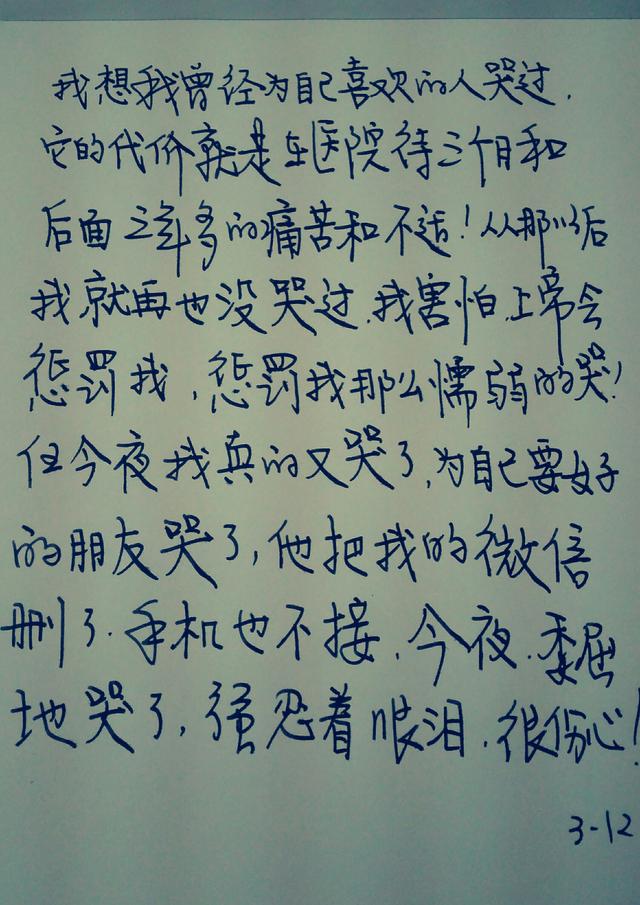 我想我曾经为自己喜欢的人哭过.
它的代价就是在医院待三个月和
后面三年多的痛苦和不适!从那以后
我就再也没哭过.我害怕上帝会
惩罚我,惩罚我那么懦弱的哭!
但今夜我真的又哭了,为自己要好
的朋友哭了,他把我的微信
删了.手机也不接.今夜.委屈
地哭了,强忍着眼泪.很伤心!
3-12